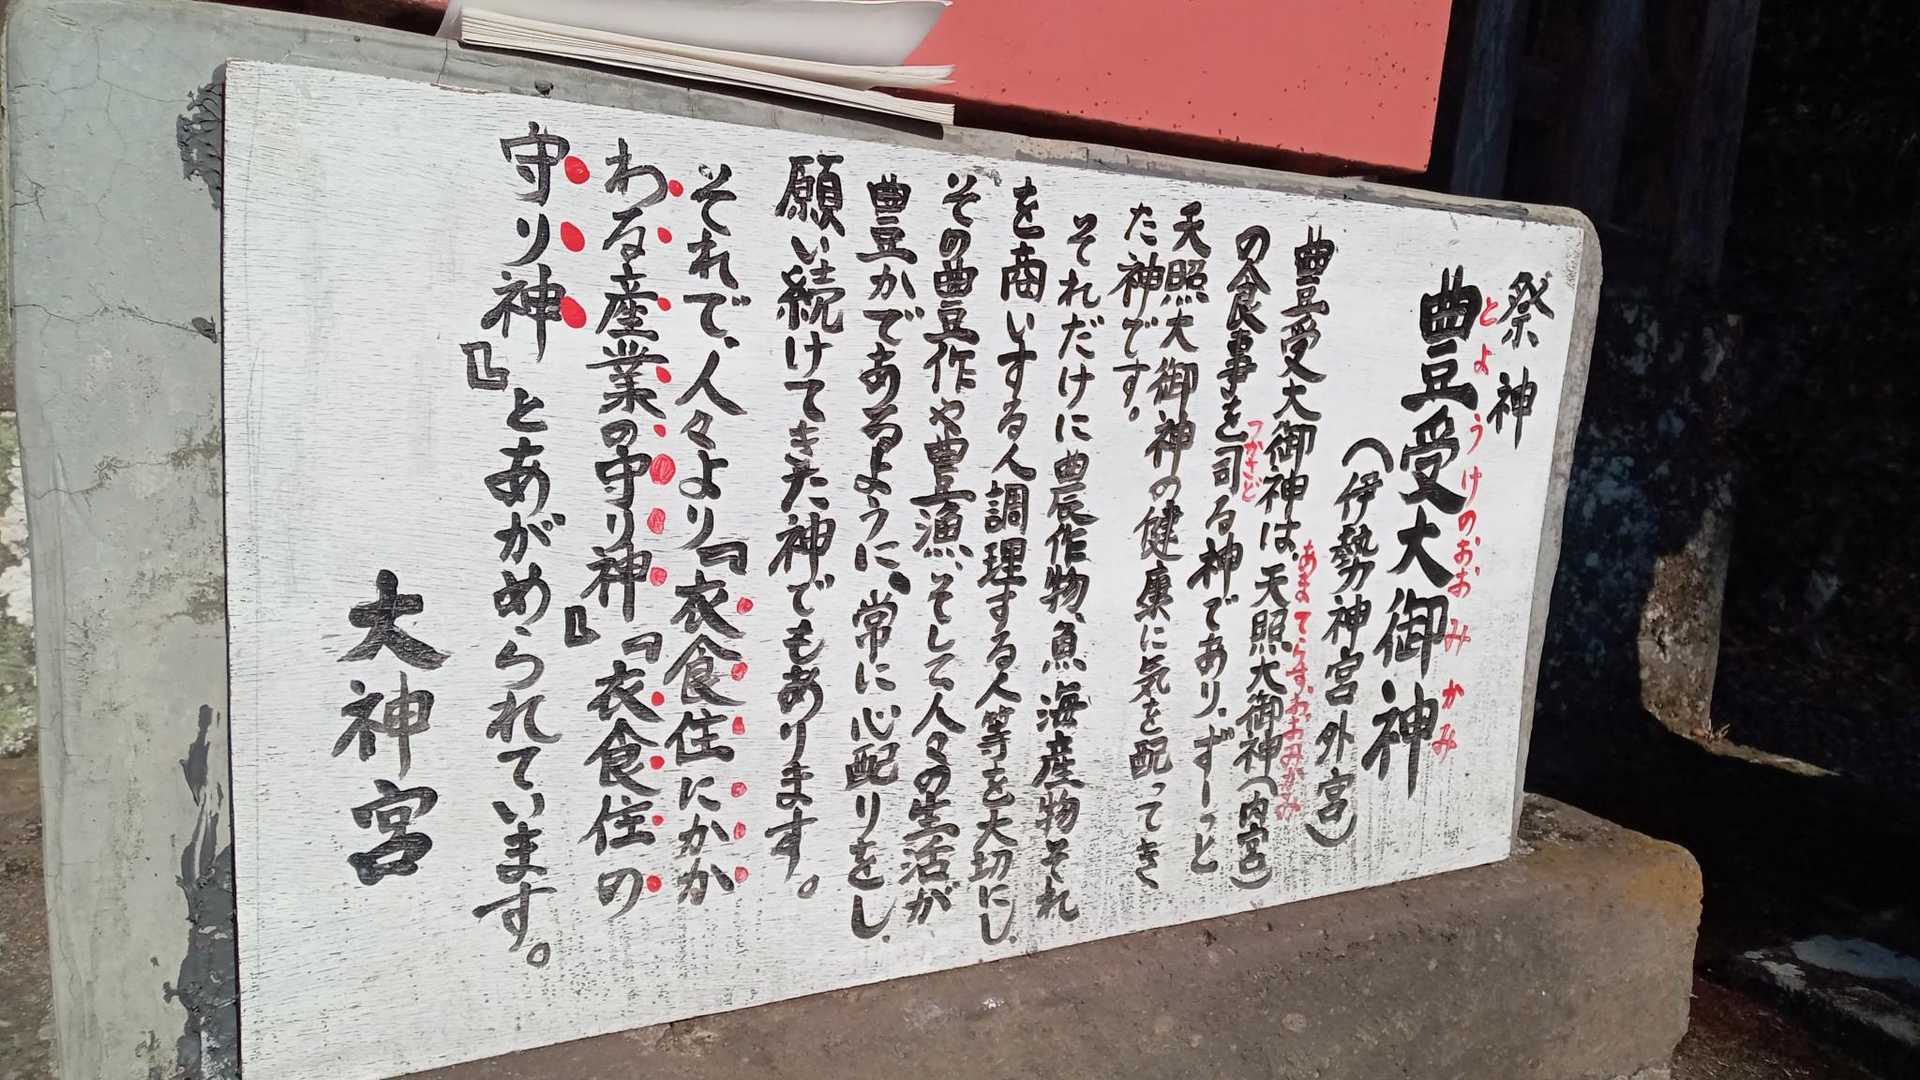 祭神
豊受大御神
とようけのおおみかみ
(伊勢神宮外宮)
豊受大御神は、天照大御神(内宮)
あまてらすおおみかみ
の食事を司る神であり、ずーっと
つかさど
天照大御神の健康に気を配ってき
た神です。
それだけに農作物、魚海産物それ
を商いする人調理する人等を大切にし、
その豊作や豊漁、そして人々の生活が
豊かであるように、常に心配りをし、
願い続けてきた神でもあります。
それで、人々より『衣食住にかか
わる産業の守り神』『衣食住の
守り神』とあがめられています。
大神宮